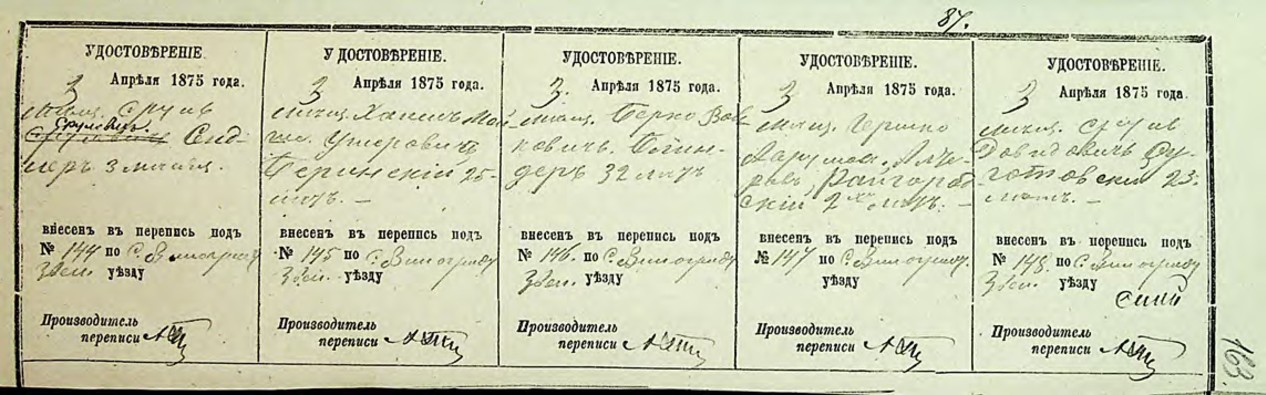 87.
УДОСТОВѢРЕНІЕ.
3 Апрѣля 1875 года.
мѣщ. Сруль
Срулевичъ.
3 мѣсяц.
внесенъ въ перепись подъ
№ 144 по с. Винограду
Звен. уѣзду
Производитель
переписи
УДОСТОВѢРЕНІЕ.
3 Апрѣля 1875 года.
мѣщ. Хаимъ Мой-
25-
лѣтъ. —
внесенъ въ перепись подъ
№ 145 по с. Винограду
Звен. уѣзду
Производитель
переписи
УДОСТОВѢРЕНІЕ.
3. Апрѣля 1875 года.
мѣщ. Берко Вол-
ковичъ.
деръ 32 лѣтъ
внесенъ въ перепись подъ
№ 146. по с. Винограду
Звен. уѣзду
Производитель
переписи
УДОСТОВѢРЕНІЕ.
3 Апрѣля 1875 года.
мѣщ. Гершко
Райгород-
скій 2хъ лѣтъ. —
внесенъ въ перепись подъ
№ 147 по с. Винограду.
уѣзду
Производитель
переписи
УДОСТОВѢРЕНІЕ.
3 Апрѣля 1875 года.
мѣщ. Сруль
Давидовичъ
23-
лѣтъ. —
внесенъ въ перепись подъ
№ 148. по с. Винограду
Звен. уѣзду
Производитель
переписи
163.